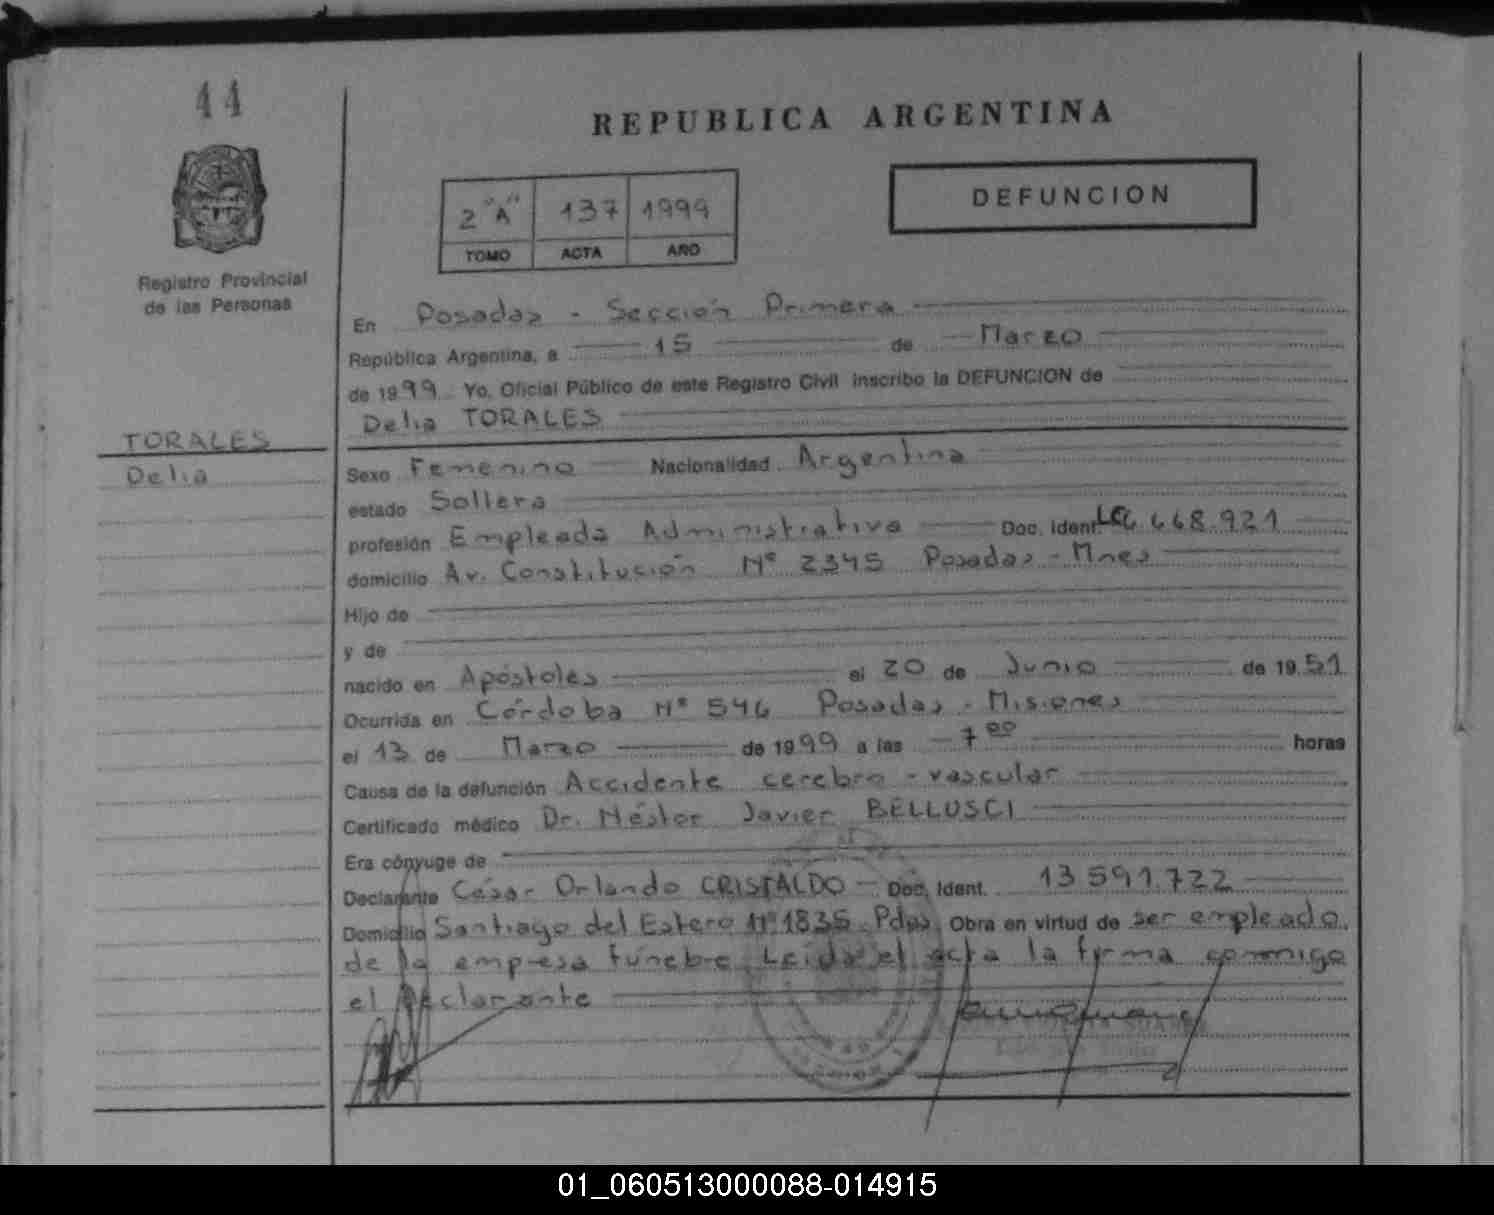 44
REPUBLICA ARGENTINA
2 "A" 137 1999
TOMO ACTA AÑO
DEFUNCION
Registro Provincial
de las Personas
En Posadas - Sección Primera
República Argentina, a 15 de Marzo
de 1999 Yo, Oficial Público de este Registro Civil inscribo la DEFUNCION de
Delia TORALES
TORALES
Delia
Sexo Femenino Nacionalidad Argentina
estado Soltera
profesión Empleada Administrativa Doc. Ident. 668.921
domicilio Av. Constitución Nº 2345 Posadas - Mnes
Hijo de
y de
nacido en Apóstoles el 20 de Junio de 1951
Ocurrida en Córdoba Nº 546 Posadas - Misiones
el 13 de Marzo de 1999 a las 7 00 horas
Causa de la defunción Accidente cerebro - vascular
Certificado médico Dr. Néstor Javier BELLUSCI
Era cónyuge de
Declarante César Orlando CRISTALDO Doc. Ident. 13.591.722
Domicilio Santiago del Estero Nº 1835 Pdas Obra en virtud de ser empleado
de la empresa fúnebre. Leida el acta la firma conmigo
el declarante
01_060513000088-014915